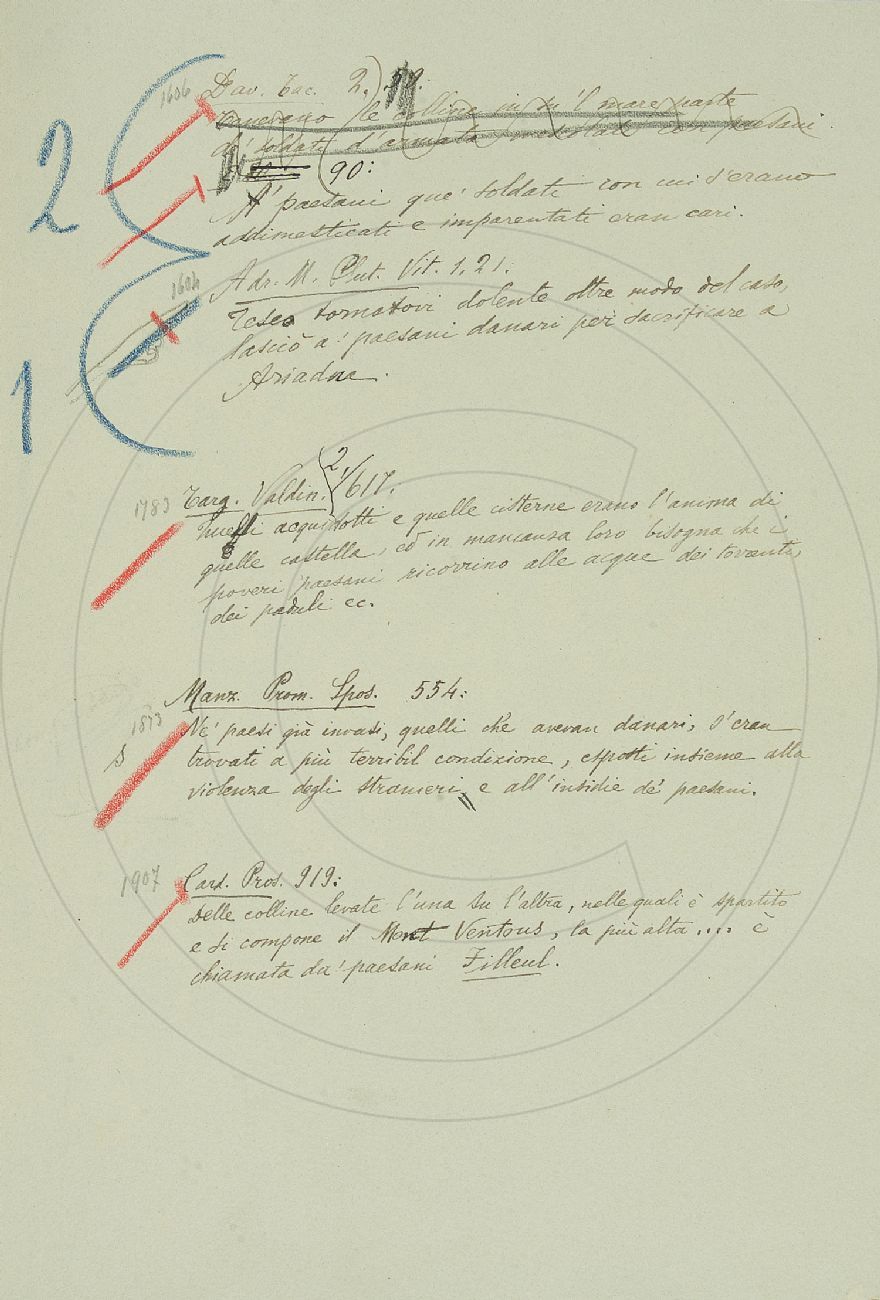 2
1606
Dav. Tac. 2.)
Tenevano le colline in su 'l mare parte
de' soldati d'armata mescolati con paesani
90:
A' paesani que' soldati con cui s'erano
addimesticati e imparentati eran cari.
1604
Adr. M. Plut. Vit. 1. 21:
Teseo tornatovi dolente oltre modo del caso,
lasciò a' paesani danari per sacrificare a
Ariadna.
1
1783
Targ. Valdin. 2. 617.
Quelli acquidotti e quelle cisterne erano l'anima di
quelle castella, ed in mancanza loro bisogna che i
poveri paesani ricorrino alle acque dei torrenti,
dei paduli ec.
Manz. Prom. Spos. 554:
1873
Ne' paesi già invasi, quelli che avevan danari, s'eran
S
trovati a più terribil condizione, esposti insieme alla
violenza degli stranieri, e all'insidie de' paesani.
1907
Card. Pros. 919:
Delle colline levate l'una su l'altra, nelle quali è spartito
e si compone il Mont Ventous, la più alta .... è
chiamata da' paesani Filleul.
C